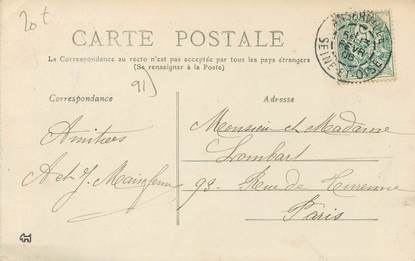 20 €
CARTE POSTALE
La Correspondance au recto n'est pas acceptée par tous les pays étrangers
(Se renseigner à la Poste)
91)
Correspondance
Adresse
Amitiés
A et J.
Monsieur et Madame
Lombart
93 Rue de Turenne
Paris
SEINE-ET-OISE